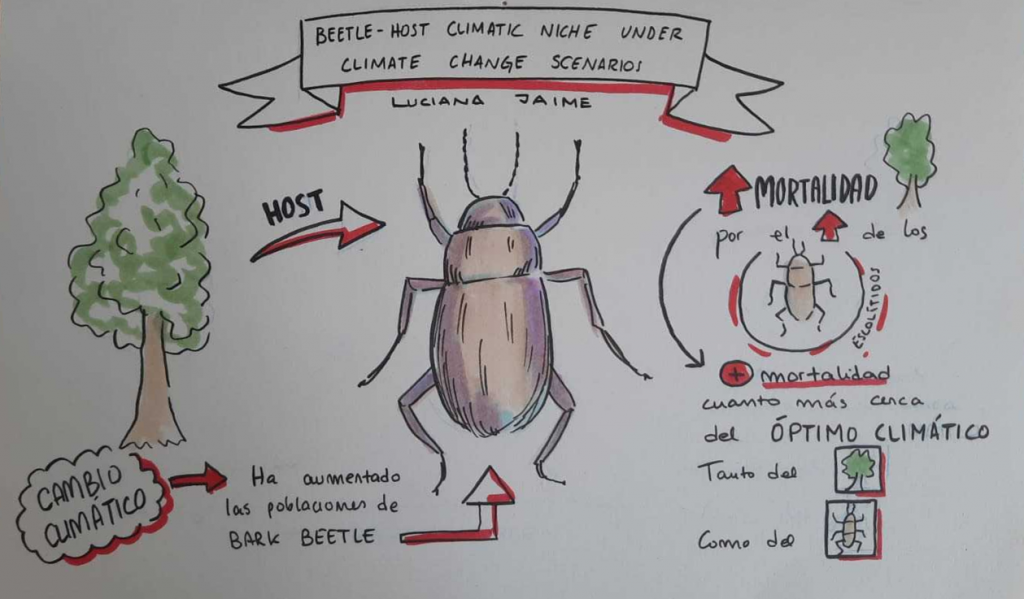 BEETLE-HOST CLIMATIC NICHE UNDER
CLIMATE CHANGE SCENARIOS
LUCIANA JAIME
HOST
CAMBIO
CLIMÁTICO
Ha aumentado
las poblaciones de
BARK BEETLE
MORTALIDAD
por el de los
ESCOLÍTIDOS
+ mortalidad
cuanto más cerca
del ÓPTIMO CLIMÁTICO
Tanto del
Como del